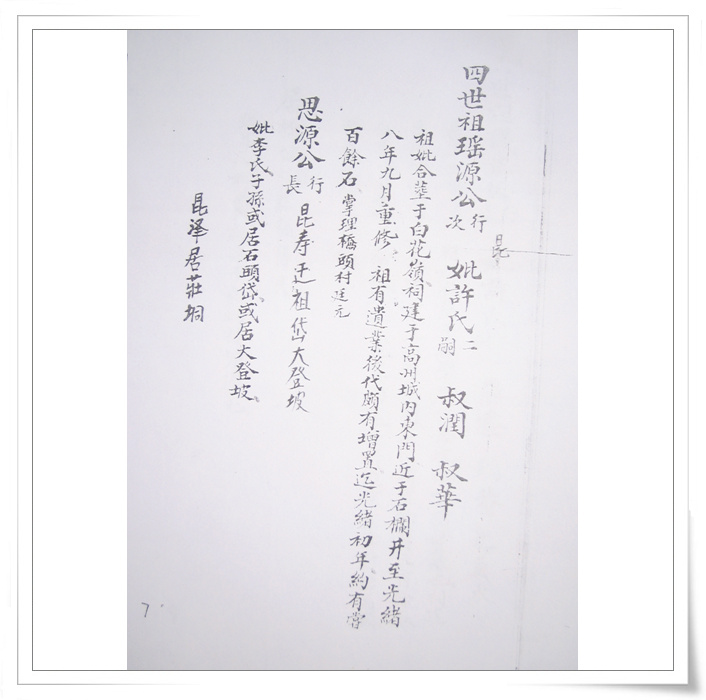 四世祖瑤源公行次 妣許氏二嗣 叔潤 叔華
昆
祖妣合塟于白花嶺祠建于高州城內東門近于石欄井至光緒
八年九月重修 祖有遺業後代頗有增置迄光緒初年約有嘗
百餘石 掌理橋頭村廷元
思源公行長 昆寿迁祖岱大登坡
妣李氏子孫或居石頭岱或居大登坡
昆泽居莊垌
7